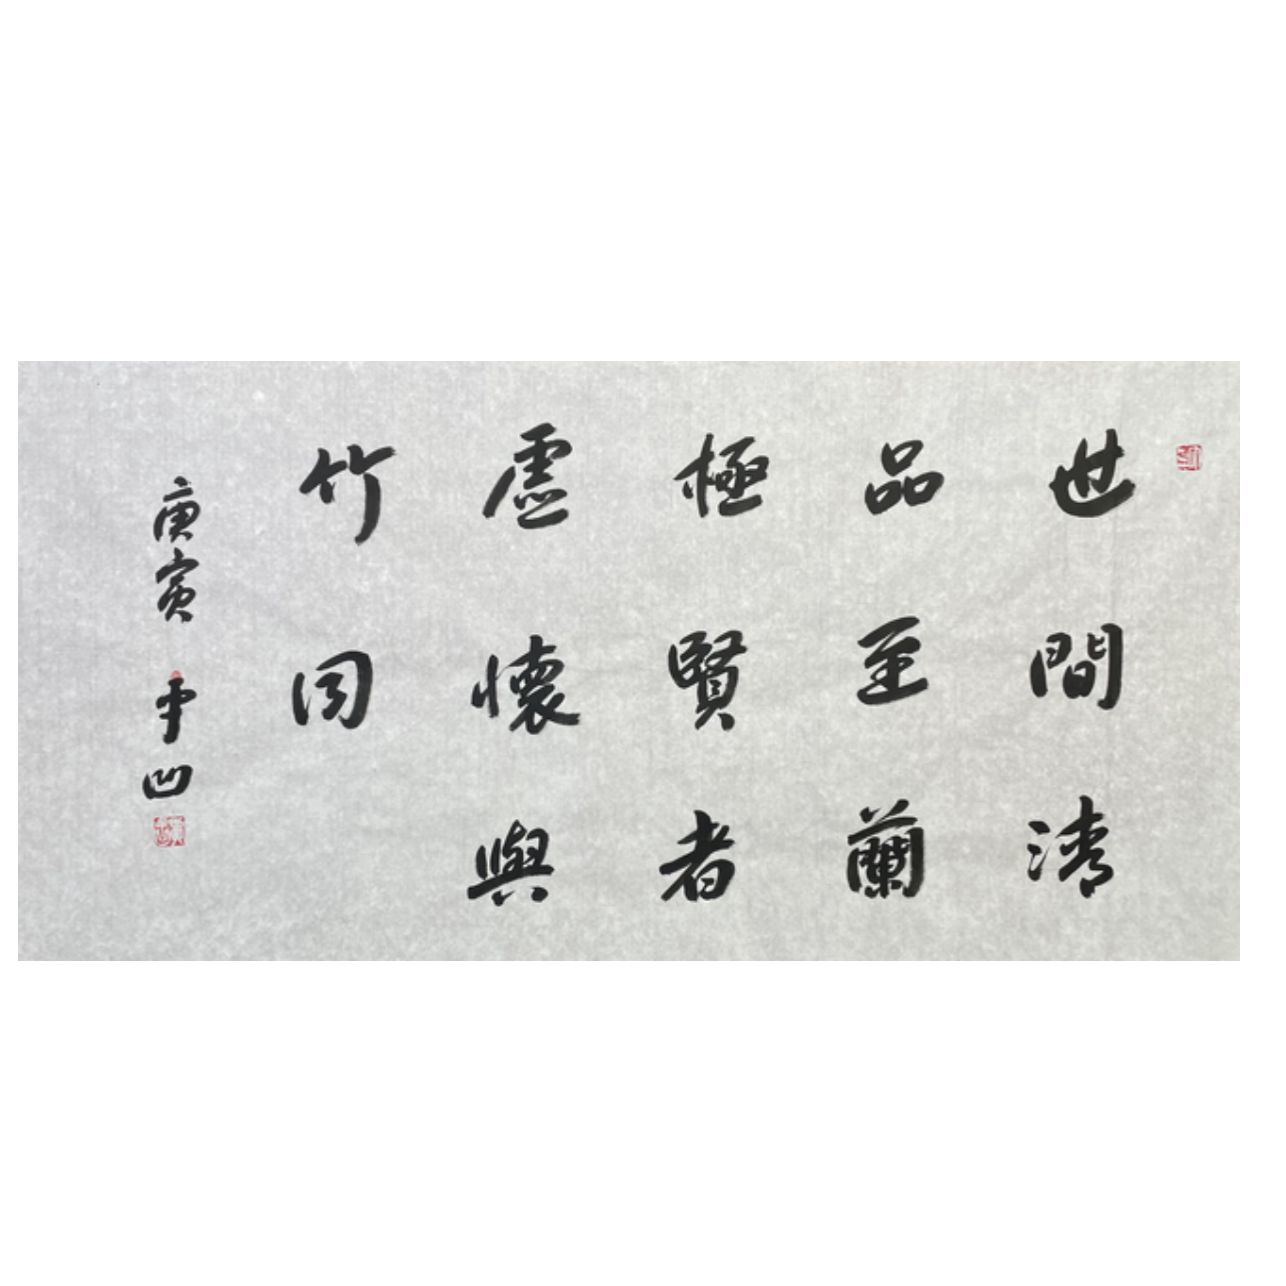 世間清
品至蘭
極賢者
虛懷與
竹同
庚寅 平凹